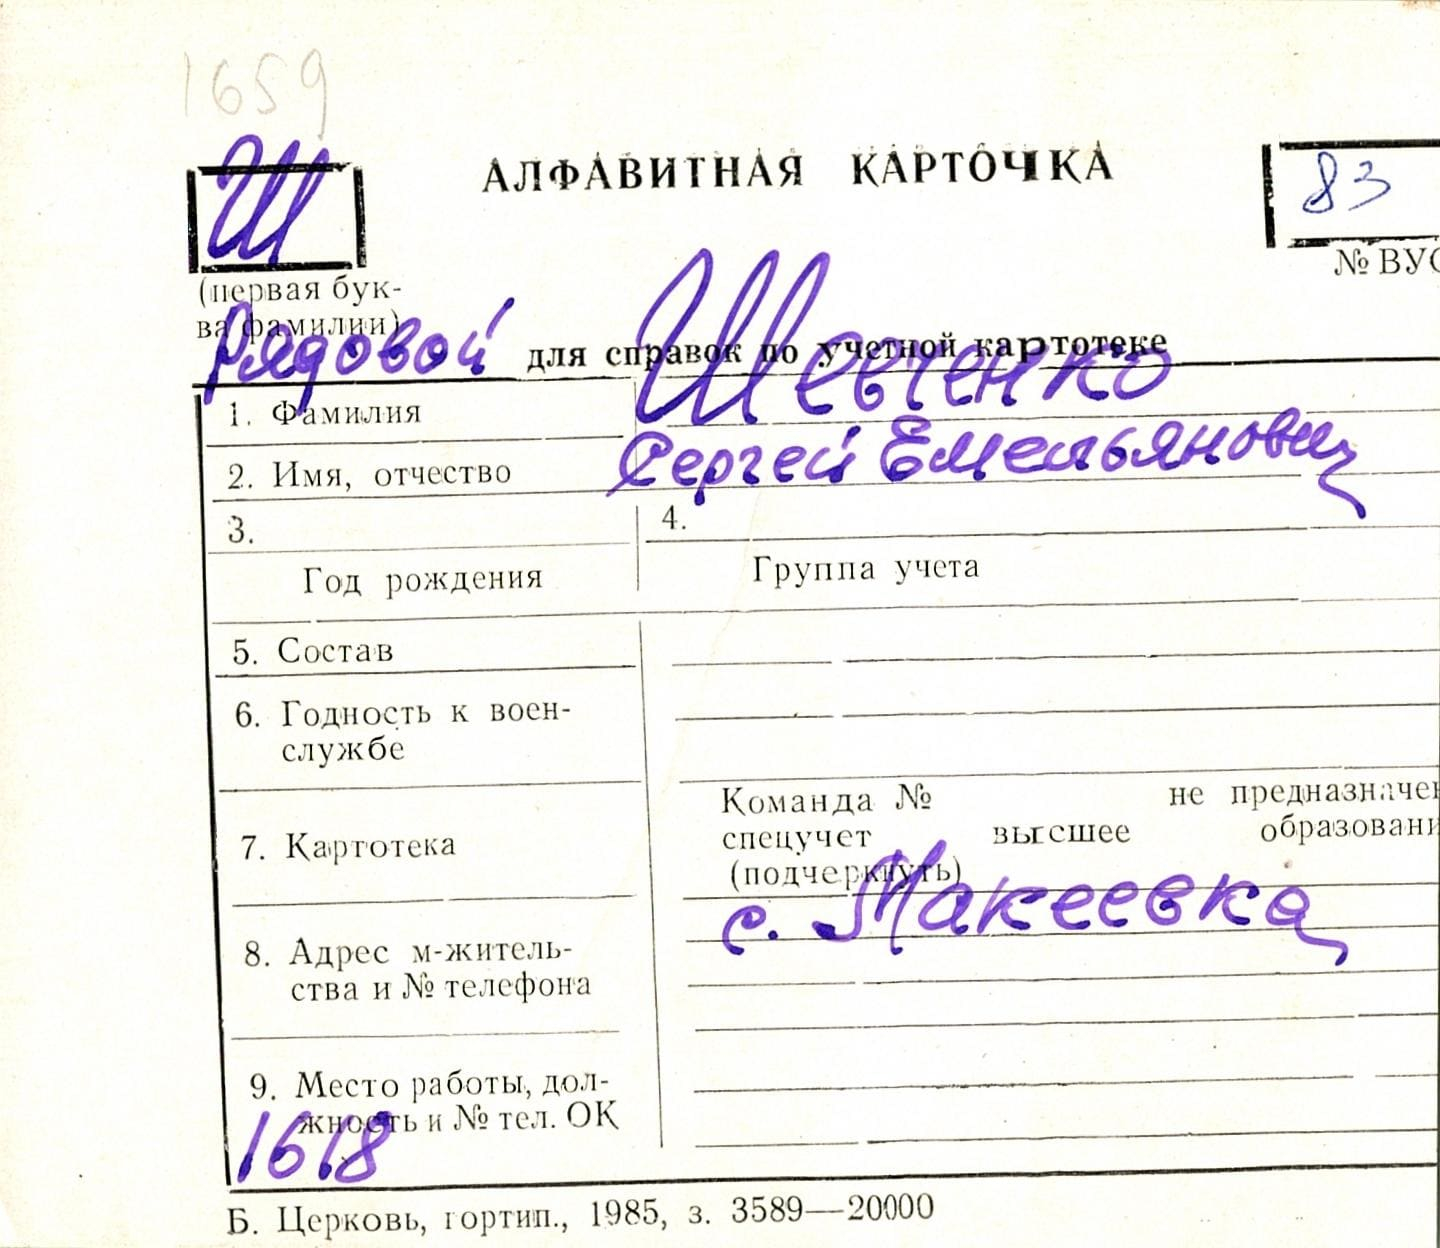 1659
Ш
АЛФАВИТНАЯ КАРТОЧКА
83
№ ВУС
(первая бук-
ва фамилии)
Рядовой
для справок по учетной картотеке
1. Фамилия
Шевченко
2. Имя, отчество
Сергей Емельянович
3.
4.
Год рождения
Группа учета
5. Состав
6. Годность к воен-
службе
7. Картотека
Команда № не предназначен
спецучет высшее образовани
(подчеркнуть)
8. Адрес м-житель-
ства и № телефона
с. Макеевка
9. Место работы, дол-
жность и № тел. ОК
1618
Б. Церковь, гортип., 1985, з. 3589—20000